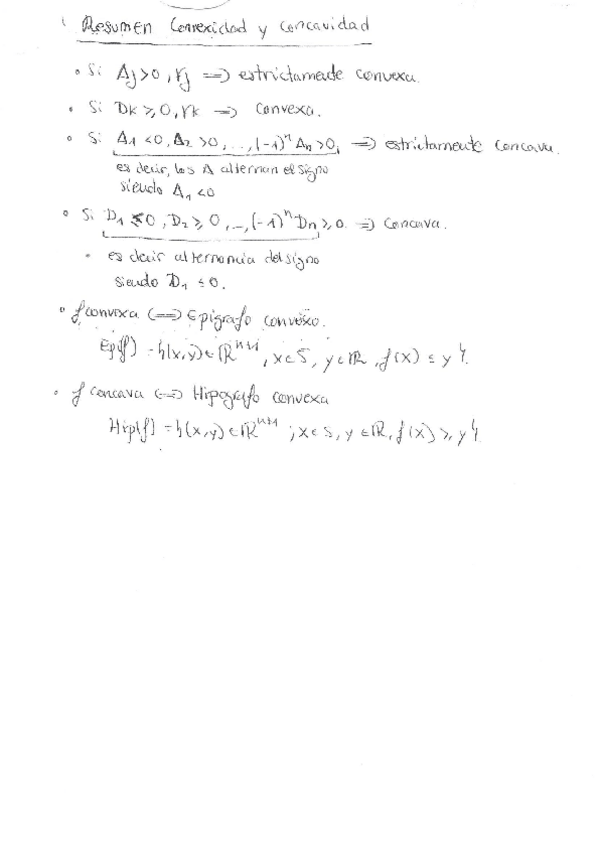 Resumen Convexidad y Concavidad
• Si Δj>0, ∀j ⟹ estrictamente convexa.
• Si Dk ≥ 0, ∀k ⟹ Convexa.
• Si Δ1 <0, Δ2 >0, ..., (-1)^n Δn >0, ⟹ estrictamente concava.
es decir, los Δ alternan el signo
siendo Δ1 <0
• Si D1 ≤ 0, D2 ≥ 0, ..., (-1)^n Dn ≥ 0. ⟹ Concava.
• es decir alternancia del signo
siendo D1 ≤ 0.
• f convexa ⟺ Epigrafo convexo.
Ep(f) = {(x,y) ∈ ℝ^{n+1}, x ∈ S, y ∈ ℝ, f(x) ≤ y}.
• f concava ⟺ Hipografo convexa
Hip(f) = {(x,y) ∈ ℝ^{n+1}; x ∈ S, y ∈ ℝ, f(x) ≥ y}.